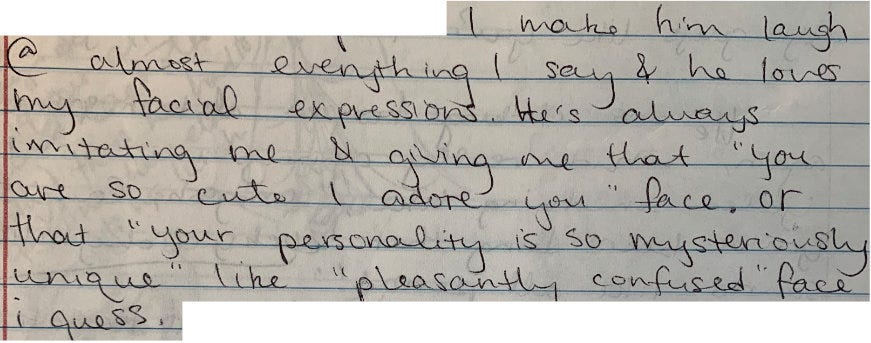 I make him laugh
@ almost everything I say & he loves
my facial expressions. He's always
imitating me & giving me that "you
are so cute I adore you" face. or
that "your personality is so mysteriously
unique" like "pleasantly confused" face
i guess.